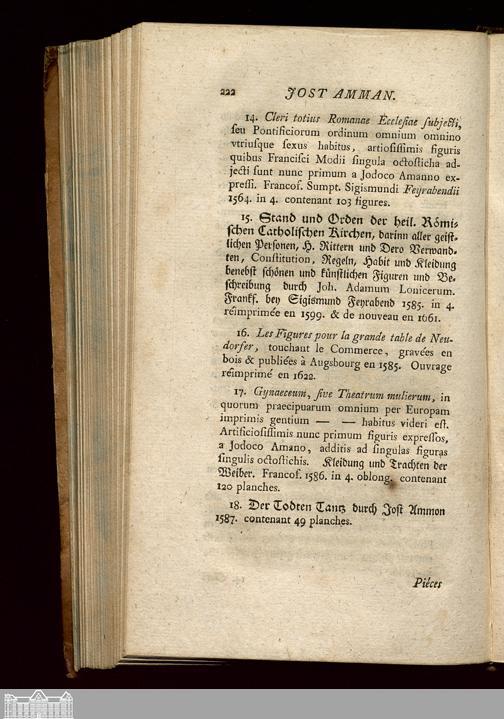 222 JOST AMMAN.
14. Cleri totius Romanae Ecclesiae subjecti,
seu Pontificiorum ordinum omnium omnino
vtriusque sexus habitus, artiosissimis figuris
quibus Francisci Modii singula octosticha ad-
jecti sunt nunc primum a Jodoco Amanno ex-
pressi. Francof. Sumpt. Sigismundi Feyrabendii
1564. in 4. contenant 103 figures.
15. Stand und Orden der heil. Römi-
schen Catholischen Kirchen, darinn aller geist-
lichen Personen, H. Rittern und Dero Verwand-
ten, Constitution, Regeln, Habit und Kleidung
benebst schönen und künstlichen Figuren und Be-
schreibung durch Joh. Adamum Lonicerum.
Frankf. bey Sigismund Feyrabend 1585. in 4.
réimprimée en 1599. & de nouveau en 1661.
16. Les Figures pour la grande table de Neu-
dorfer, touchant le Commerce, gravées en
bois & publiées à Augsbourg en 1585. Ouvrage
réimprimé en 1622.
17. Gynaeceum, sive Theatrum mulierum, in
quorum praecipuarum omnium per Europam
imprimis gentium — — habitus videri est.
Artificiosissimis nunc primum figuris expressos,
a Jodoco Amano, additis ad singulas figuras
singulis octostichis. Kleidung und Trachten der
Weiber. Francof. 1586. in 4. oblong, contenant
120 planches.
18. Der Todten Tantz durch Jost Ammon
1587. contenant 49 planches.
Piéces